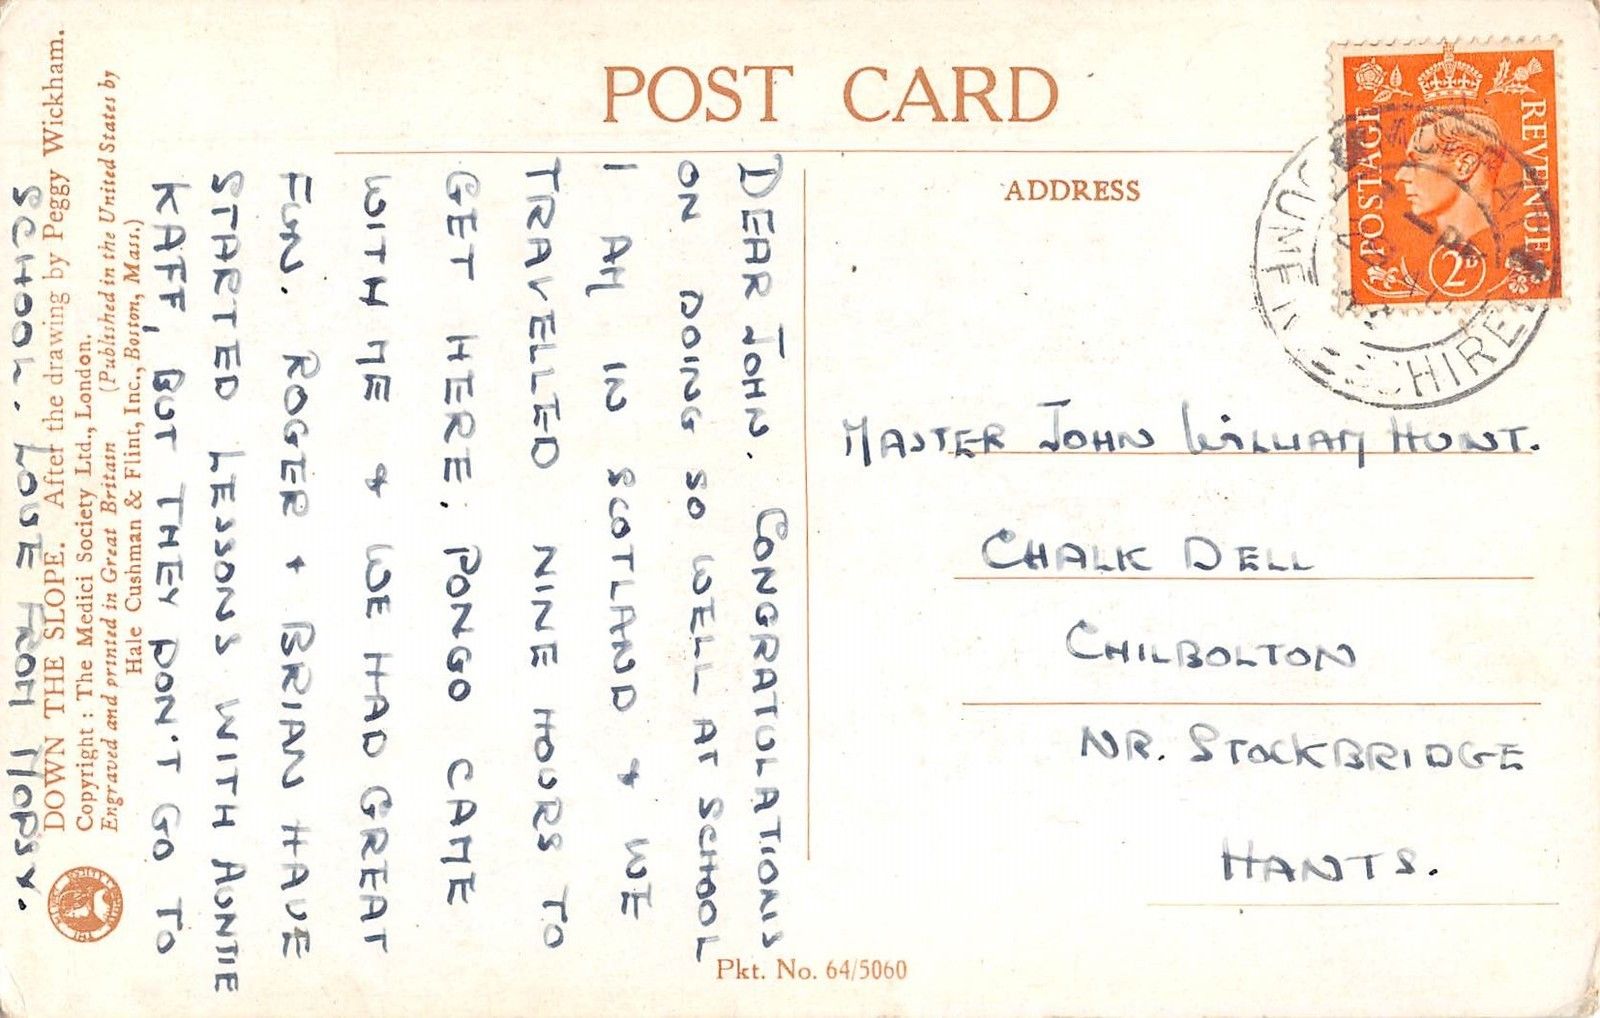 POST CARD
ADDRESS
POSTAGE
REVENUE
2D
DEAR JOHN. CONGRATULATIONS
ON DOING SO WELL AT SCHOOL
I AM IN SCOTLAND & WE
TRAVELLED NINE HOURS TO
GET HERE. PONGO CAME
WITH ME & WE HAD GREAT
FUN. ROGER & BRIAN HAVE
STARTED LESSONS WITH AUNTIE
KAFF, BUT THEY DON'T GO TO
SCHOOL. LOVE FROM MOPSY.
MASTER JOHN WILLIAM HUNT.
CHALK DELL
CHILBOLTON
NR. STOCKBRIDGE
HANTS.
DOWN THE SLOPE. After the drawing by Peggy Wickham.
Copyright : The Medici Society Ltd., London.
Engraved and printed in Great Britain (Published in the United States by
Hale Cushman & Flint, Inc., Boston, Mass.)
Pkt. No. 64/5060